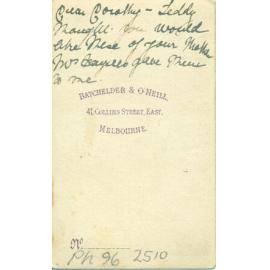 Dear Dorothy - Teddy
thought you would
like these of your
Mrs gave these
to me.
BATCHELDER & O'NEILL,
41, COLLINS STREET, EAST,
MELBOURNE.
No
PH 96 2510